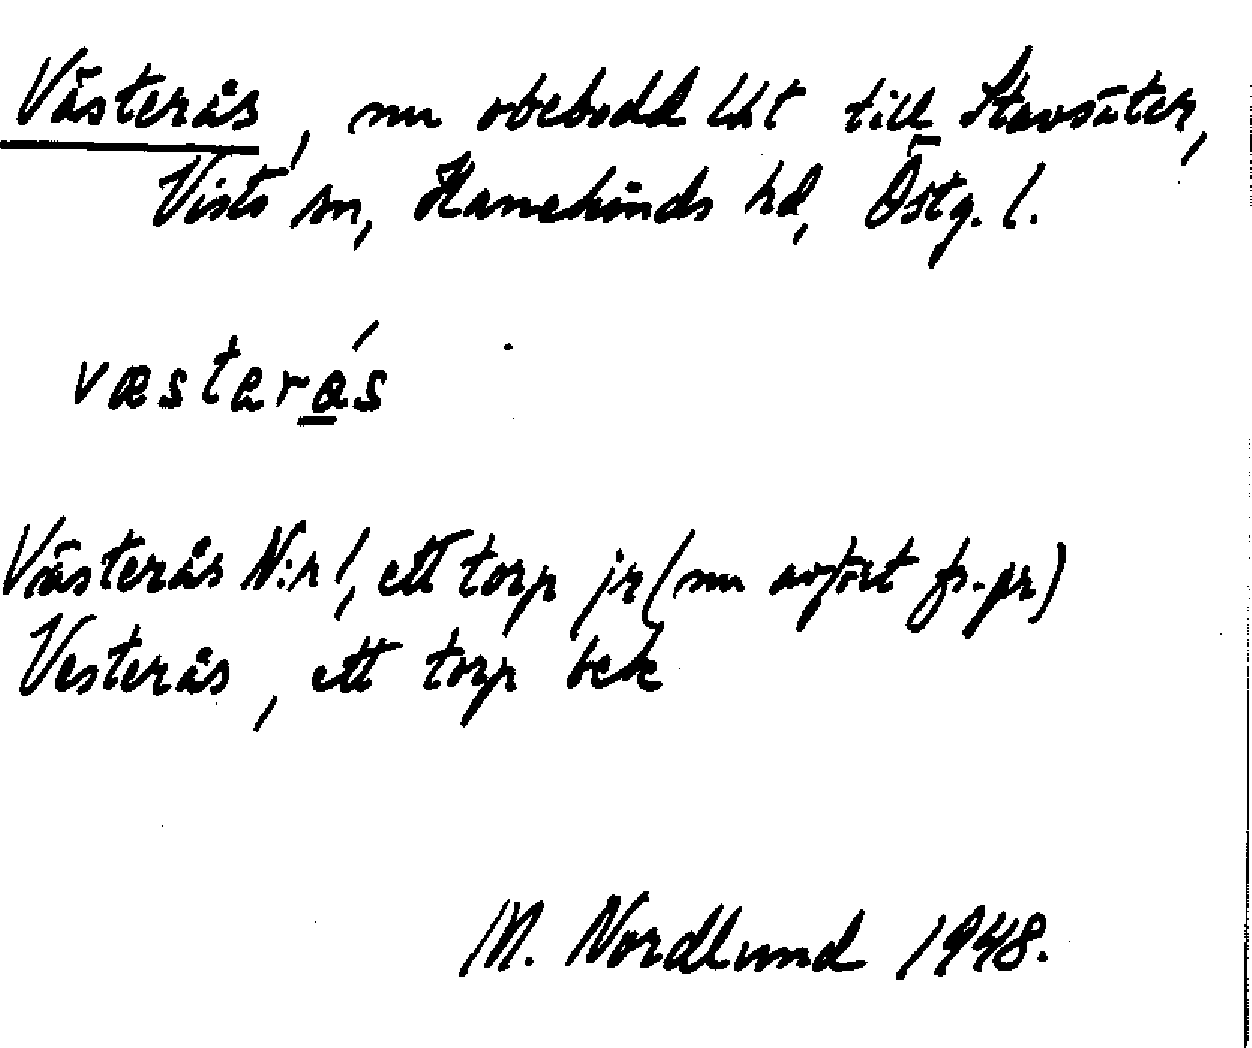 Västerås, nu obebodd lht till Stavsäter,
Visto sn, Hanekinds hd, Östg. l.
væsterás
Västerås N:r 1, ett torp jr (nu avfört fr. jr)
Vesterås, ett torp bek
M. Nordlund 1948.